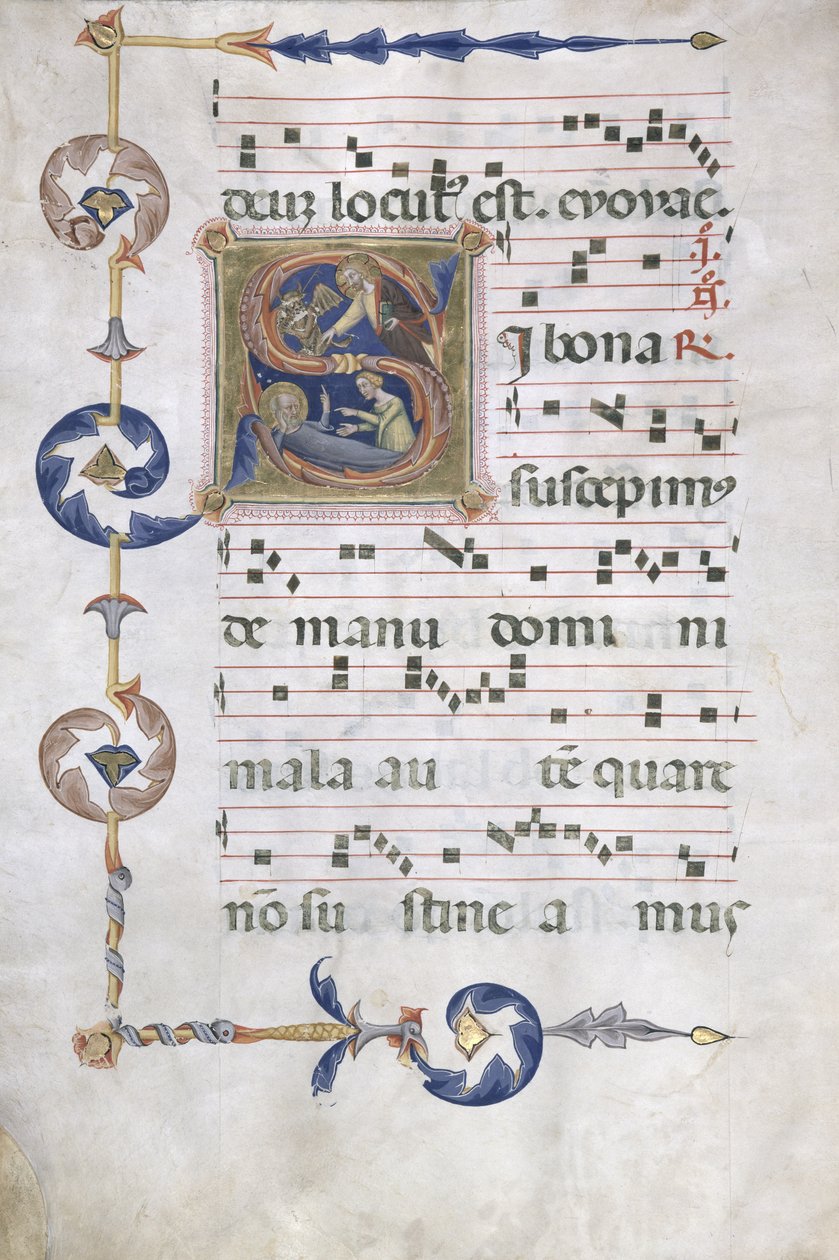 deus locutꝰ est. evovae.
.j.
SI bona R.
suscepimꝰ
de manu domini
mala autē quare
nō sustineamus